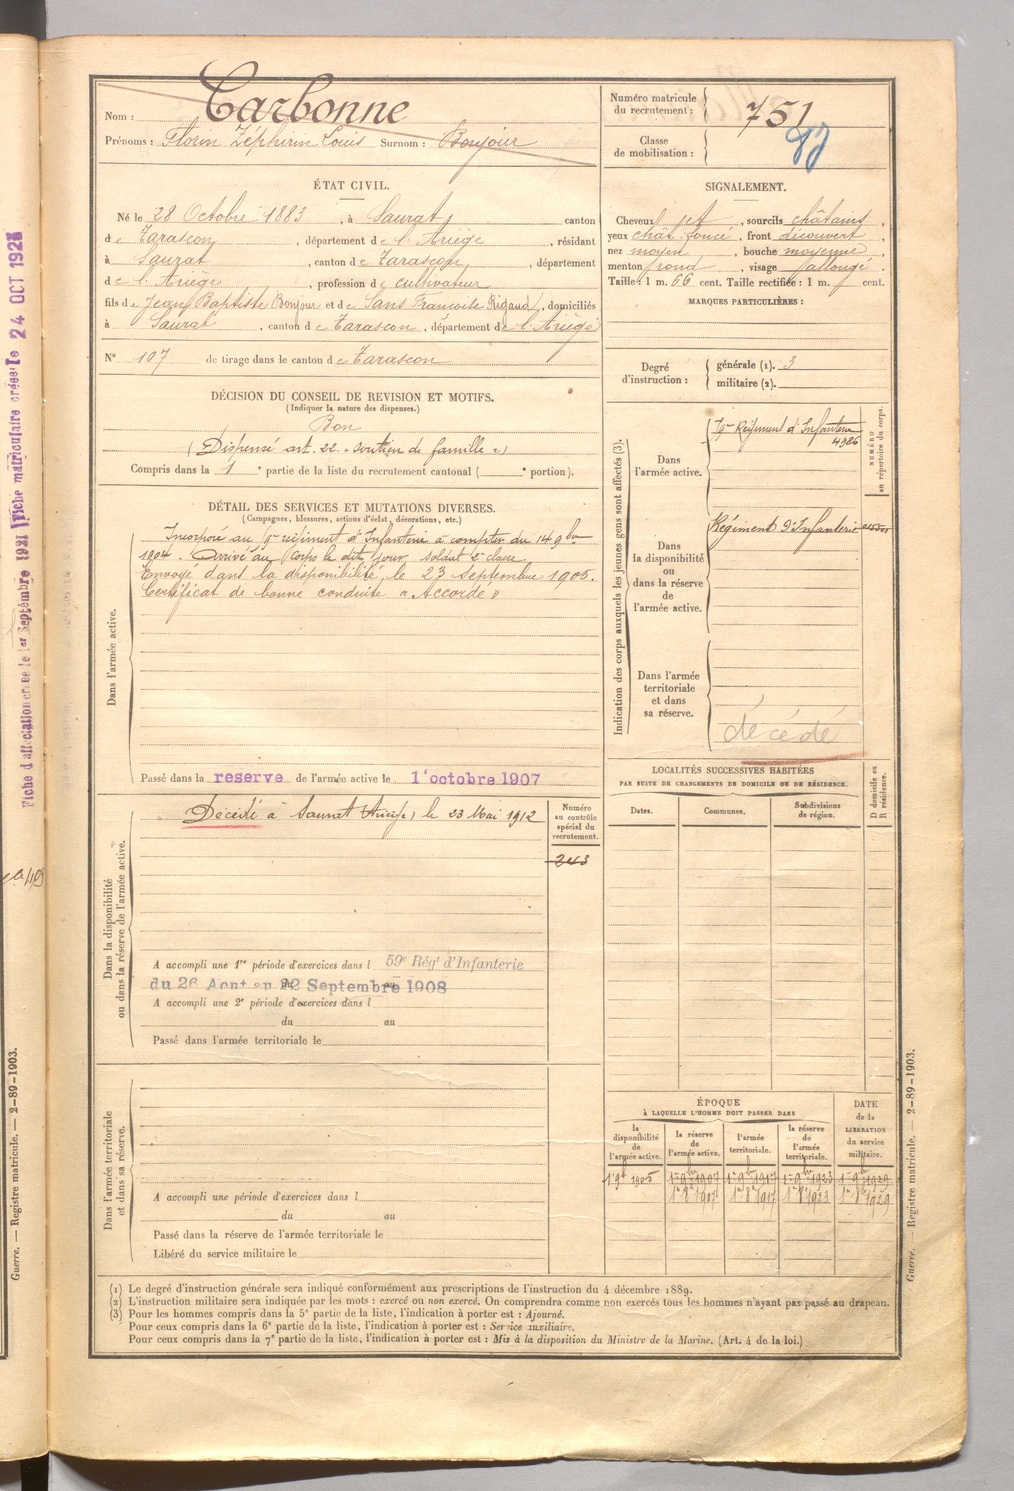 Nom : Carbonne
Prénoms : Florin Zéphirin Louis Surnom : Bonjour
Numéro matricule
du recrutement : 751
Classe
de mobilisation :
ÉTAT CIVIL.
Né le 28 Octobre 1883, à Saurat, canton
de Tarascon, département de l'Ariège, résidant
à Saurat, canton de Tarascon, département
de l'Ariège, profession de cultivateur
fils de Jean Baptiste Bonjour et de Sans Francoise Rigaud, domiciliés
à Saurat, canton de Tarascon, département de l'Ariège
N° 107 de tirage dans le canton de Tarascon
SIGNALEMENT.
Cheveux jet, sourcils châtains,
yeux chât. foncé, front découvert,
nez moyen, bouche moyenne,
menton rond, visage allongé.
Taille : 1 m. 66 cent. Taille rectifiée : 1 m. cent.
MARQUES PARTICULIÈRES :
Degré
d'instruction :
générale (1). 3
militaire (2).
DÉCISION DU CONSEIL DE REVISION ET MOTIFS.
(Indiquer la nature des dispenses.)
Bon
(Dispensé art. 22. soutien de famille »)
Compris dans la 1e partie de la liste du recrutement cantonal ( e portion).
DÉTAIL DES SERVICES ET MUTATIONS DIVERSES.
(Campagnes, blessures, actions d'éclat, décorations, etc.)
Dans l'armée active.
Incorporé au régiment d'Infanterie à compter du 14 9bre
1904. Arrivé au Corps le dit jour soldat 2e classe
Envoyé dans la disponibilité le 23 Septembre 1905.
Certificat de bonne conduite « Accordé »
Passé dans la réserve de l'armée active le 1 octobre 1907
Indication des corps auxquels les jeunes gens sont affectés (3).
Dans
l'armée active.
Régiment d'Infanterie
4986
NUMÉRO
au répertoire du corps.
Dans
la disponibilité
ou
dans la réserve
de
l'armée active.
Régiment d'Infanterie
Dans l'armée
territoriale
et dans
sa réserve.
décédé
LOCALITÉS SUCCESSIVES HABITÉES
PAR SUITE DE CHANGEMENTS DE DOMICILE OU DE RÉSIDENCE.
Dates.
Communes.
Subdivisions
de région.
D domicile ou
R résidence.
Dans la disponibilité
ou dans la réserve de l'armée active.
Décédé à Saurat (Ariège) le 23 Mai 1912
Numéro
au contrôle
spécial du
recrutement.
243
A accompli une 1re période d'exercices dans l 59e Rég' d'Infanterie
du 26 Aout au 22 Septembre 1908
A accompli une 2e période d'exercices dans l
du au
Passé dans l'armée territoriale le
Dans l'armée territoriale
et dans sa réserve.
A accompli une période d'exercices dans l
du au
Passé dans la réserve de l'armée territoriale le
Libéré du service militaire le
ÉPOQUE
À LAQUELLE L'HOMME DOIT PASSER DANS
DATE
de la
LIBÉRATION
du service
militaire.
la
disponibilité
de
l'armée active.
la réserve
de
l'armée active.
l'armée
territoriale.
la réserve
de
l'armée
territoriale.
1er 9bre 1905 1er 9bre 1907 1er 9bre 1917 1er 9bre 1923 1er 9bre 1929
1er 8bre 1907 1er 8bre 1917 1er 8bre 1923 1er 8bre 1929
(1) Le degré d'instruction générale sera indiqué conformément aux prescriptions de l'instruction du 4 décembre 1889.
(2) L'instruction militaire sera indiquée par les mots : exercé ou non exercé. On comprendra comme non exercés tous les hommes n'ayant pas passé au drapeau.
(3) Pour les hommes compris dans la 5e partie de la liste, l'indication à porter est : Ajourné.
Pour ceux compris dans la 6e partie de la liste, l'indication à porter est : Service auxiliaire.
Pour ceux compris dans la 7e partie de la liste, l'indication à porter est : Mis à la disposition du Ministre de la Marine. (Art. 4 de la loi.)
Guerre. — Registre matricule. — 2-89-1903.
Guerre. — Registre matricule. — 2-89-1903.
Fiche matriculaire créée le 24 OCT 1928